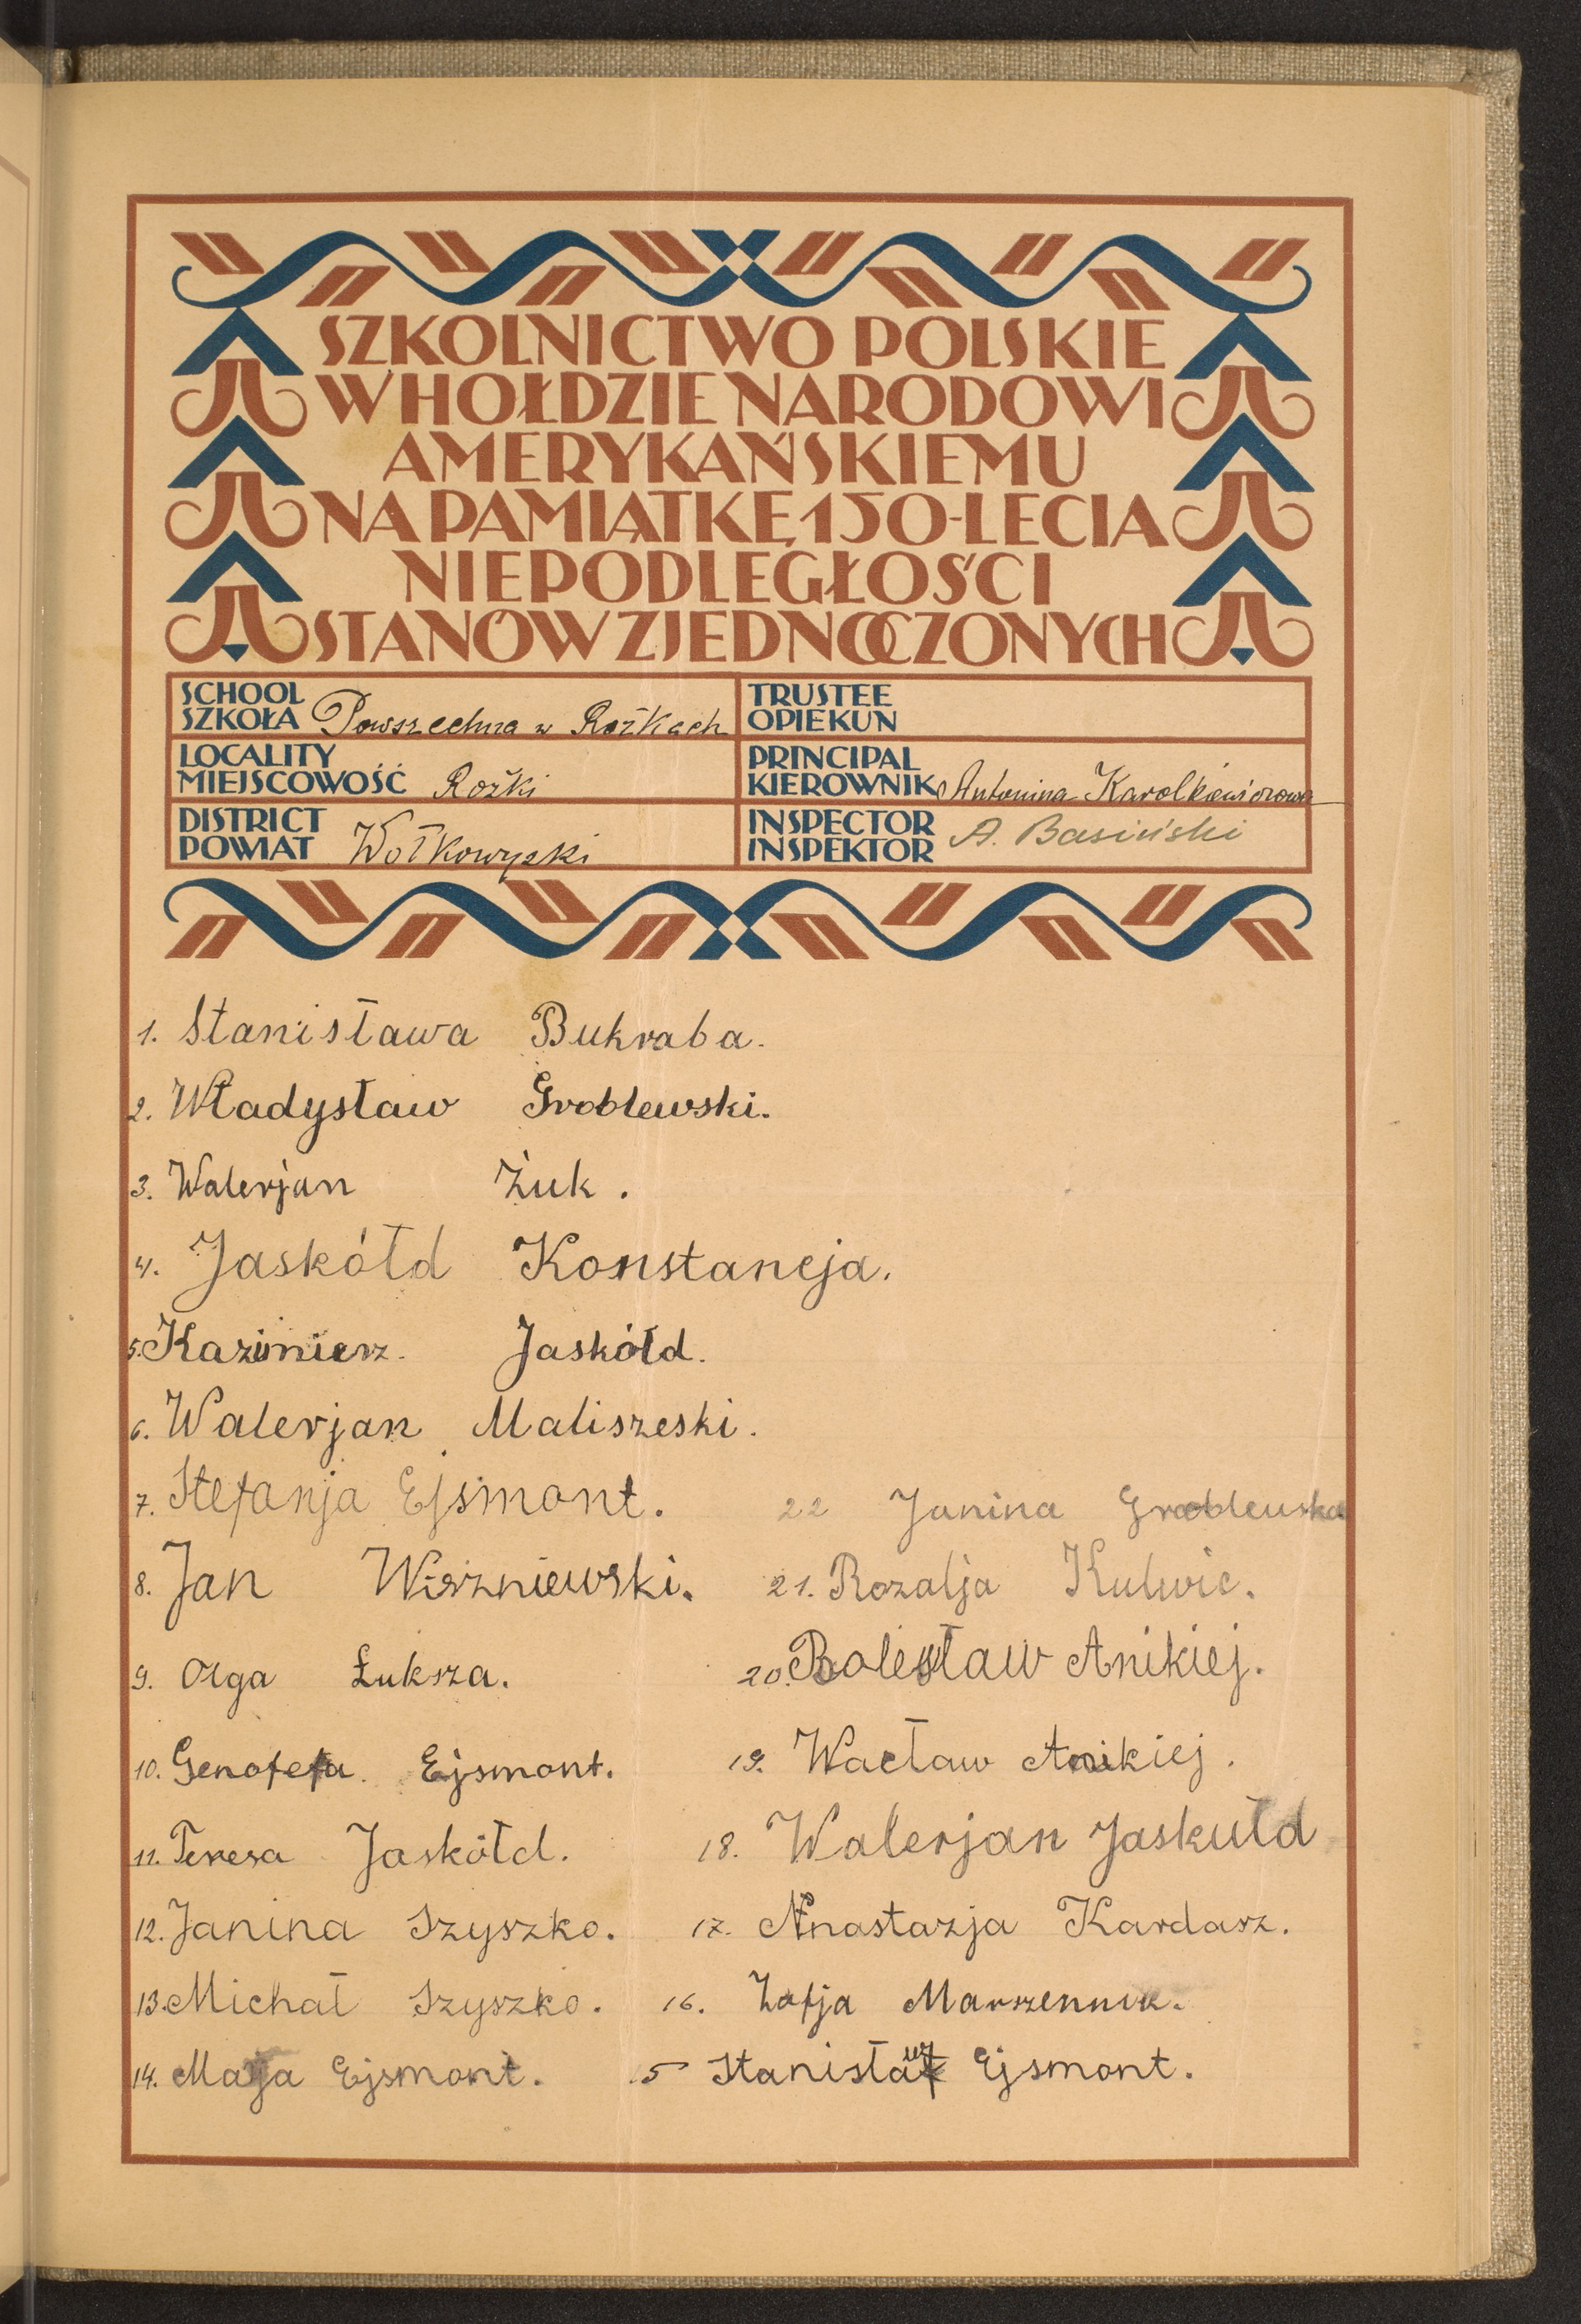 SZKOLNICTWO POLSKIE
W HOŁDZIE NARODOWI
AMERYKAŃSKIEMU
NA PAMIĄTKĘ 150-LECIA
NIEPODLEGŁOŚCI
STANÓW ZJEDNOCZONYCH
SCHOOL
SZKOŁA Powszechna w Rożkach
TRUSTEE
OPIEKUN
LOCALITY
MIEJSCOWOŚĆ Rożki
PRINCIPAL
KIEROWNIK Antonina Karolkiewiczowa
DISTRICT
POWIAT Wołkowyski
INSPECTOR
INSPEKTOR A. Basiński
1. Stanisława Bukraba.
2. Władysław Groblewski.
3. Walerjan Żuk.
4. Jaskółd Konstancja.
5. Kazimierz. Jaskółd.
6. Walerjan Maliszeski.
7. Stefanja Ejsmont.
8. Jan Wiszniewski.
9. Olga Łuksza.
10. Genofefa Ejsmont.
11. Teresa Jaskółd.
12. Janina Szyszko.
13. Michał Szyszko.
14. Marja Ejsmont.
15 Stanisław Ejsmont.
16. Zofja Marszennik.
17. Anastazja Kardasz.
18. Walerjan Jaskułd
19. Wacław Anikiej.
20. Bolesław Anikiej.
21. Rozalja Kulwic.
22 Janina Groblewska